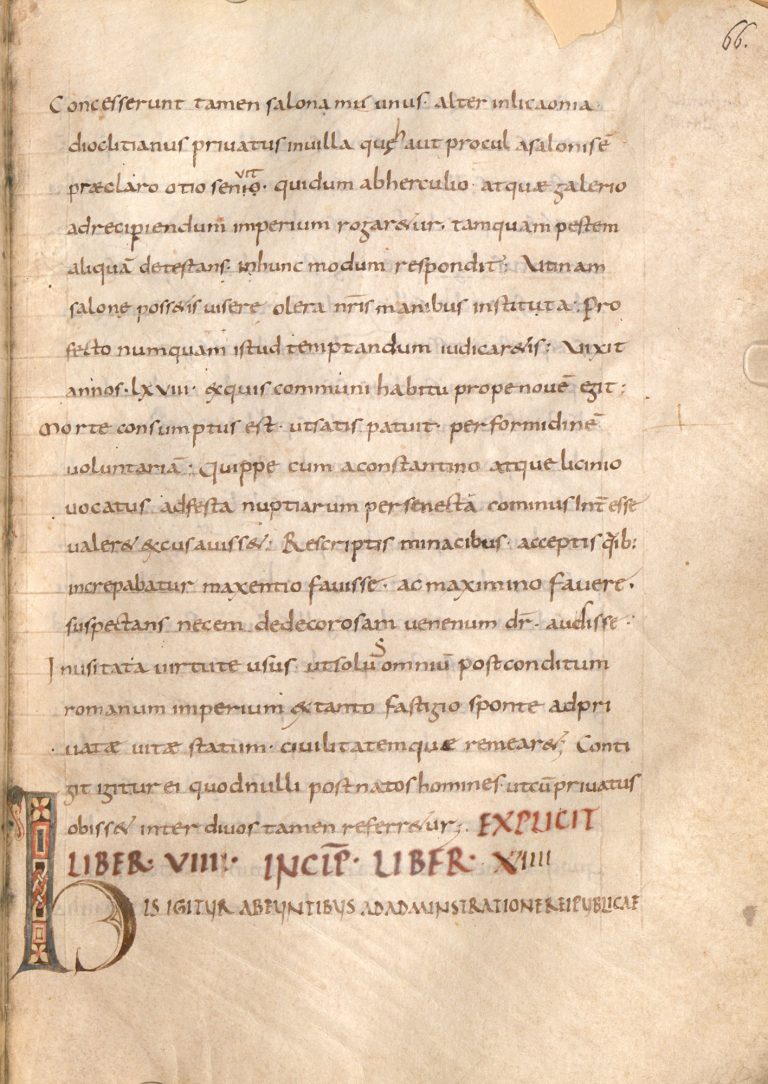 66.
Concesserunt tamen salona mus unus· alter inlicaonia·
dioclitianus privatus invilla quęh aut procul asalonisē
præclaro otio seniọvit· quidum abherculio· atquæ galerio
adrecipiendum imperium rogar&ur· tamquam pestem
aliquā detestans· inhunc modum respondit; Utinam
salone poss&is visere olera nr̄is manibus instituta· Pro
fecto numquam istud temptandum iudicar&is; Vixit
annos· lxviii· &quis communi habitu prope novē egit;
morte consumptus est· utsatis patuit· performidinē
voluntariā· Quippe cum aconstantino atque licinio
vocatus adfesta nuptiarum persenectā cominus int̄esse
valer& &cusaviss&; Rescriptis minacibus· acceptis q̄ib:
increpabatur maxentio favisse· ac maximino favere·
suspectans necem dedecorosam venenum dr̄· avdisse·
Inusitata virtute usus· utsolus omniū postconditum
romanum imperium &tanto fastigio sponte adpri
viatæ vitæ statum· civilitatemque remear&; Conti
git igitur ei quodnulli postnatos homines· utcūprivatus
obiss& inter divos tamen referr&ur; EXPLICIT
LIBER· VIIII· INCIP̄· LIBER· XIIII
HIS IGITUR ABEUNTIBUS ADADMINSTRATIONEREIPUBLICAE